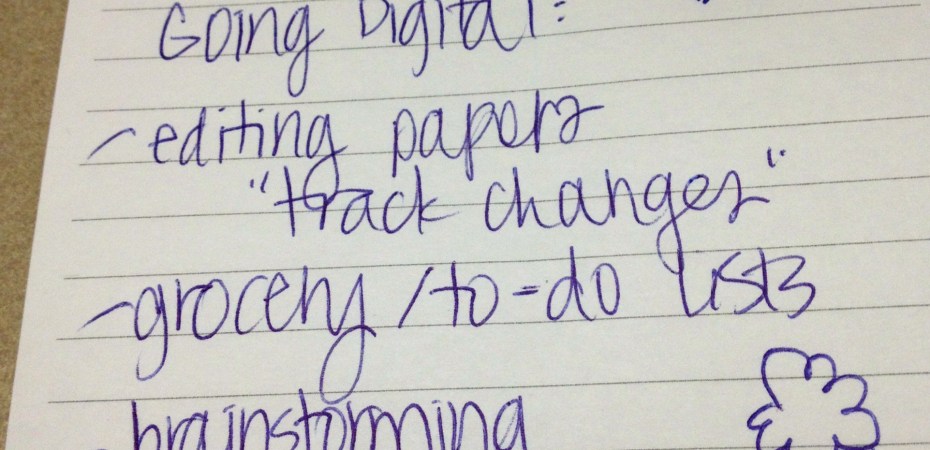 Going Digital:
- editing papers
"track changes"
- grocery/to-do lists
- brainstorming